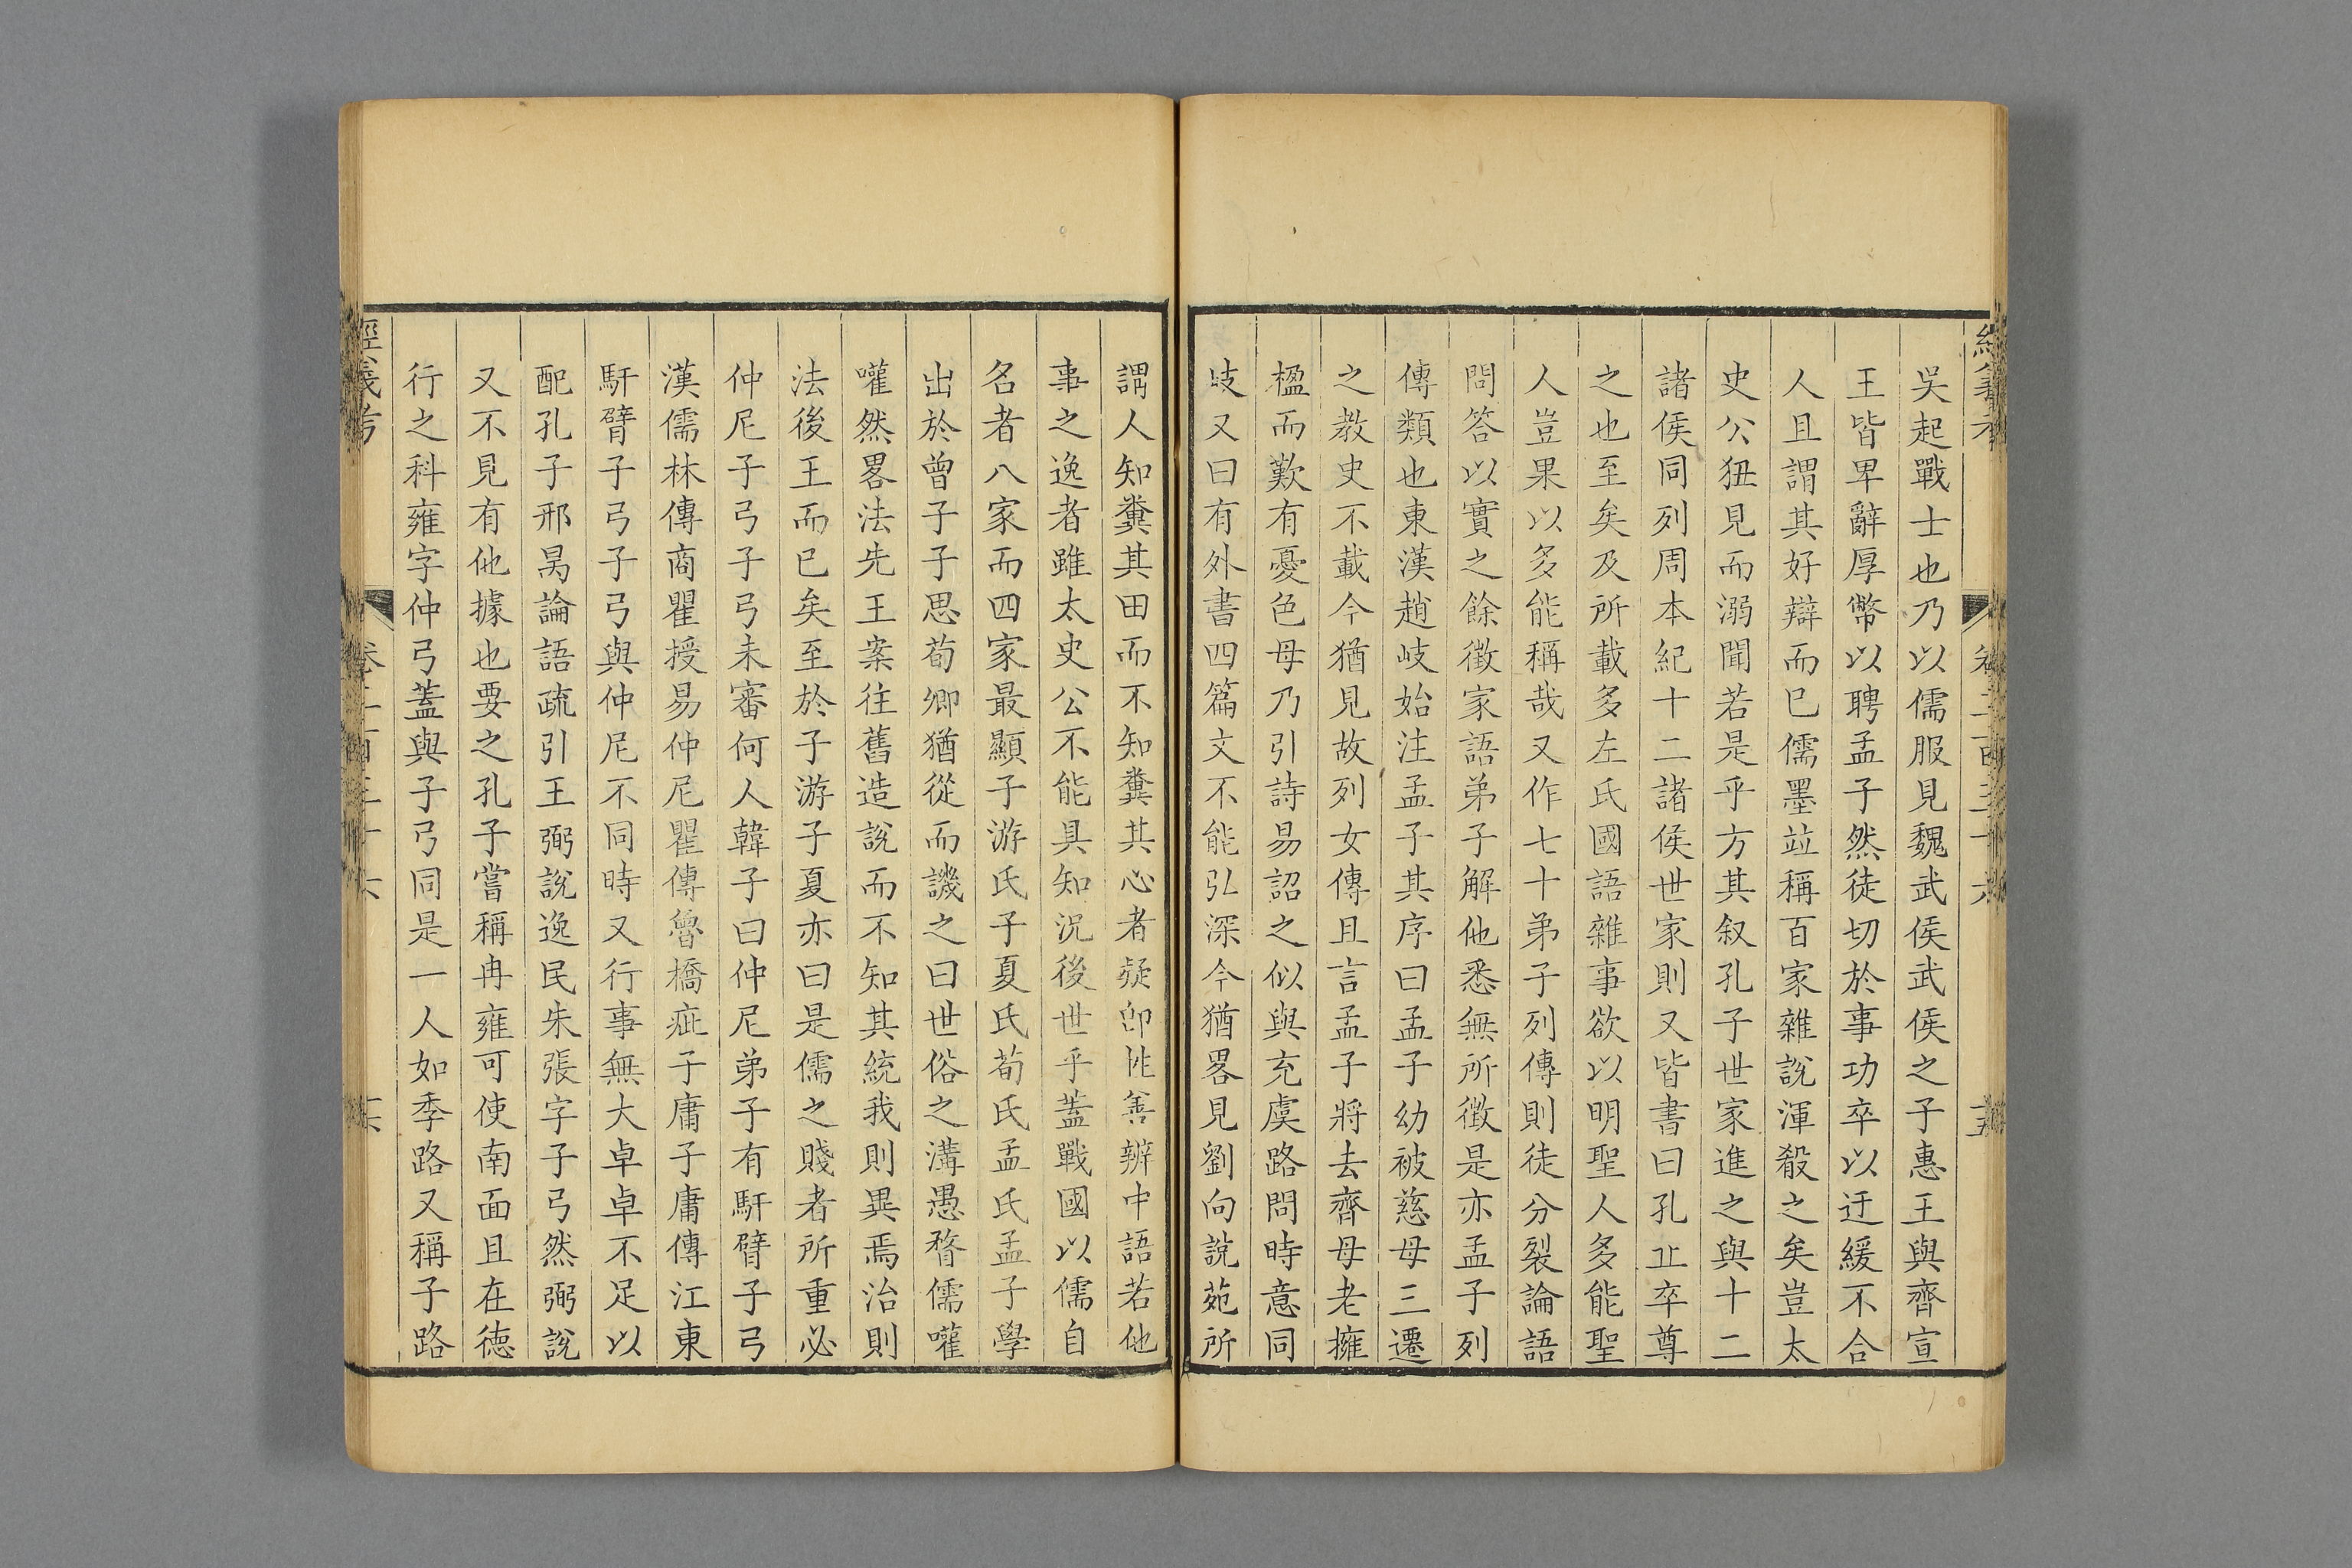 吳起戰士也乃以儒服見魏武侯武侯之子惠王與齊宣
王皆卑辭厚幣以聘孟子然徒切於事功卒以迂緩不合
人且謂其好辯而已儒墨竝稱百家雜說渾殽之矣豈太
史公狃見而溺聞若是乎方其叙孔子世家進之與十二
諸侯同列周本紀十二諸侯世家則又皆書曰孔丘卒尊
之也至矣及所載多左氏國語雜事欲以明聖人多能聖
人豈果以多能稱哉又作七十弟子列傳則徒分裂論語
問答以實之餘徵家語弟子解他悉無所徵是亦孟子列
傳類也東漢趙岐始注孟子其序曰孟子幼被慈母三遷
之教史不載今猶見故列女傳且言孟子將去齊母老擁
楹而歎有憂色母乃引詩易詔之似與充虞路問時意同
岐又曰有外書四篇文不能弘深今猶畧見劉向說苑所
謂人知糞其田而不知糞其心者疑卽性善辨中語若他
事之逸者雖太史公不能具知況後世乎蓋戰國以儒自
名者八家而四家最顯子游氏子夏氏荀氏孟氏孟子學
出於曾子子思荀卿猶從而譏之曰世俗之溝愚瞀儒嚾
嚾然畧法先王案往舊造說而不知其統我則異焉治則
法後王而已矣至於子游子夏亦曰是儒之賤者所重必
仲尼子弓子弓未審何人韓子曰仲尼弟子有馯臂子弓
漢儒林傳商瞿授易仲尼瞿傳魯橋疵子庸子庸傳江東
馯臂子弓子弓與仲尼不同時又行事無大卓卓不足以
配孔子邢昺論語疏引王弼說逸民朱張字子弓然弼說
又不見有他據也要之孔子嘗稱冉雍可使南面且在德
行之科雍字仲弓蓋與子弓同是一人如季路又稱子路
經義考